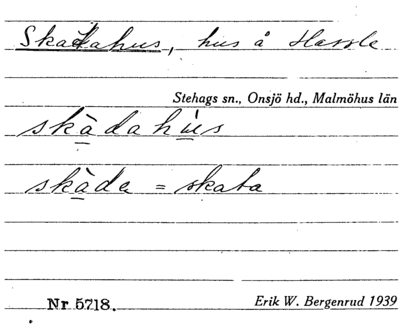 Skattahus, hus å Hassle
Stehags sn., Onsjö hd., Malmöhus län
skàdahùs
skàda = skata
Nr 5718.
Erik W. Bergenrud 1939